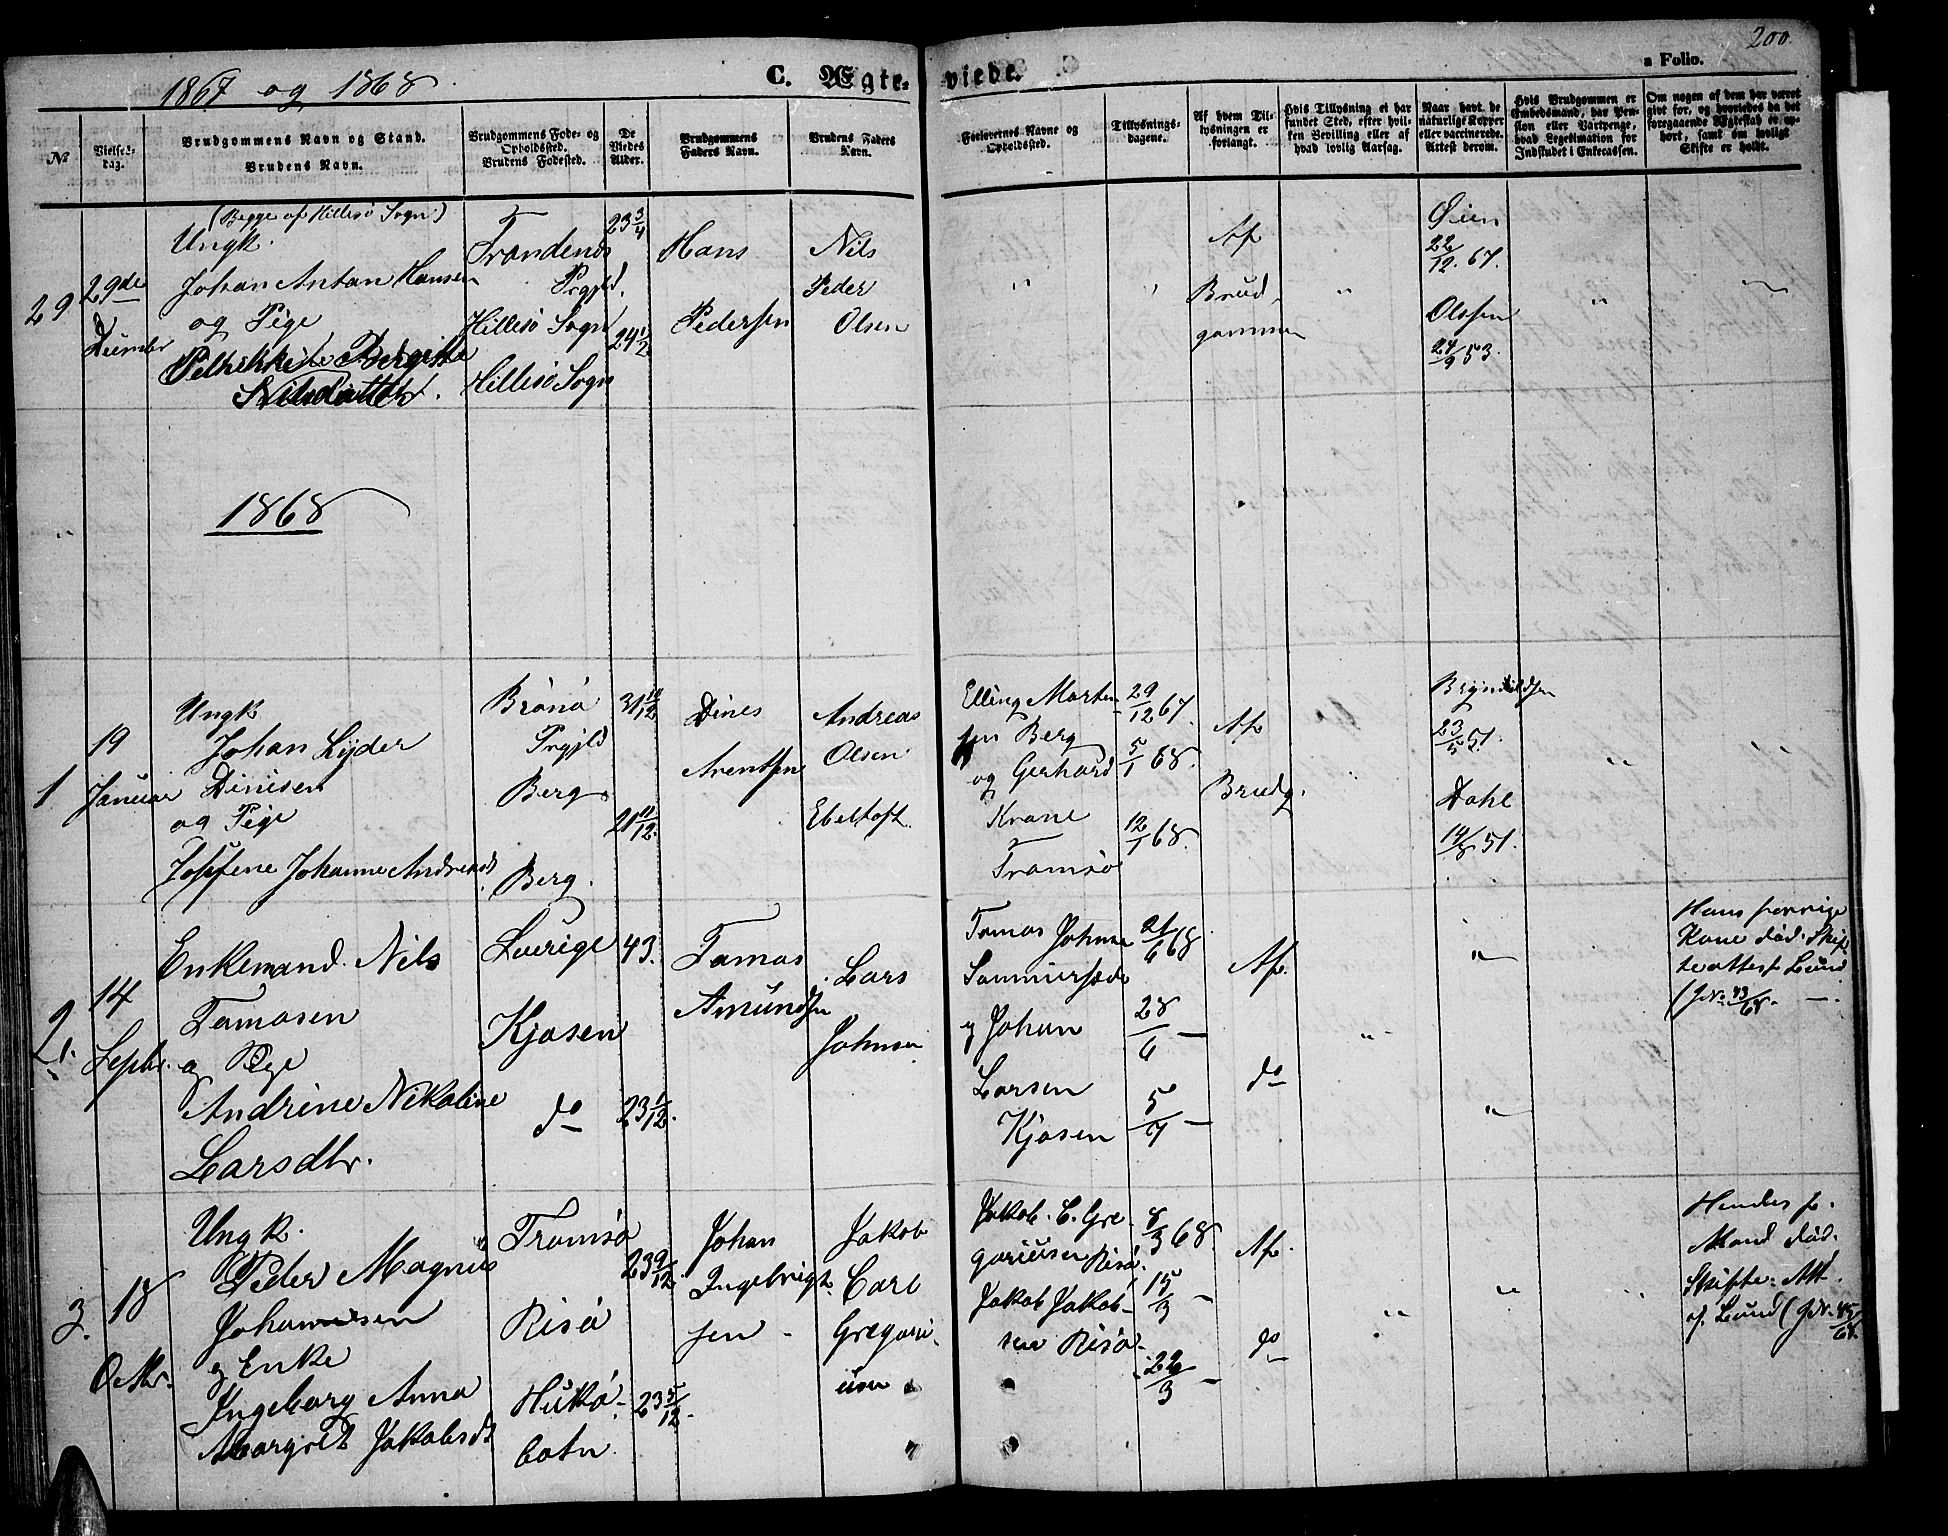 200.
1867 og 1868.
C. Ægte-
viede.
a Folio.
No
Vielses-
dag.
Brudgommens Navn og Stand.
Brudens Navn.
Brudgommens Føde- og
Opholdssted.
Brudens Fødested.
De
Viedes
Alder.
Brudgommens
Faders Navn.
Brudens Faders
Navn.
Forlovernes Navne og
Opholdssted.
Tillysnings-
dagene.
Af hvem Til-
lysningen er
forlangt.
Hvis Tillysning ei har
fundet Sted, efter hvil-
ken Bevilling eller af
hvad lovlig Aarsag.
Naar havt de
naturlige Kopper
eller vaccinerede.
Attest derom.
Hvis Brudgommen er
Embedsmand, har Pen-
sion eller Vartpenge,
hvad Legitimation for
Indskudet i Enkecassen.
Om nogen af dem har været
gift før, og hvorledes da det
foregaaende Ægteskab er op-
hørt, samt om lovligt
Skifte er holdt.
29
29de
Decembr
(Begge af Hillesø Sogn)
Ungk.
Johan Antan Hansen
og Pige
Pethrikke Bergitte
Nilsdatter.
Trondenæs
Prgjld.
Hillesø Sogn
Hillesø Sogn
23 3/4
24 1/2
Hans
Pedersen
Nils
Peder
Olsen
Af
Brud
gommen
Øien
22/12. 67.
Olssen
24/9 53.
1868
1
19
Januar
Ungk
Johan Lyder
Dinesen
og Pige
Josefine Johanne Andreasd.
Brønø
Prgjld
Berg
Berg.
31 10/12
21 11/12.
Dines
Arentsen
Andreas
Olsen
Ebeltoft.
Elling Morten
sen Berg
og Gerhard
Krane
Tromsø
29/12 67.
5/1 68.
12/1 68.
Af
Brudg.
Brynildsen
23/5 51.
Dahl
14/8 51.
2.
14
Septbr.
Enkemand. Nils
Tomasen
og Pige
Andrine Nikoline
Larsdtr.
Sverige
Kjosen
do
43.
23 1/12.
Tomas
Amundsen
Lars
Johnsen
Tomas Johnsen
Sommersæde
og Johan
Larsen
Kjosen
21/6 68
28/6 —
5/7 —
Af.
do
Hans forrige
Kone død. Skif
teattest Lund
(JNo 43/68. —.
3.
18
Octbr.
Ungk.
Peder Magnus
Johannesen
og Enke
Ingeborg Anna
Margret Jakobsd
Tromsø
Risø
Hukø-
botn.
23 9/12.
23 5/12.
Johan
Ingebrigt.
sen -
Jakob
Carl
Gregori-
usen
Jakob. C. Gre
goriusen Risø.
Jakob Jakob-
sen Risø.
8/3 68.
15/3 —
22/3 —
Af.
do
Hendes f.
Mand død.
Skifte: Att.
af. Lund (JNr. 45/68